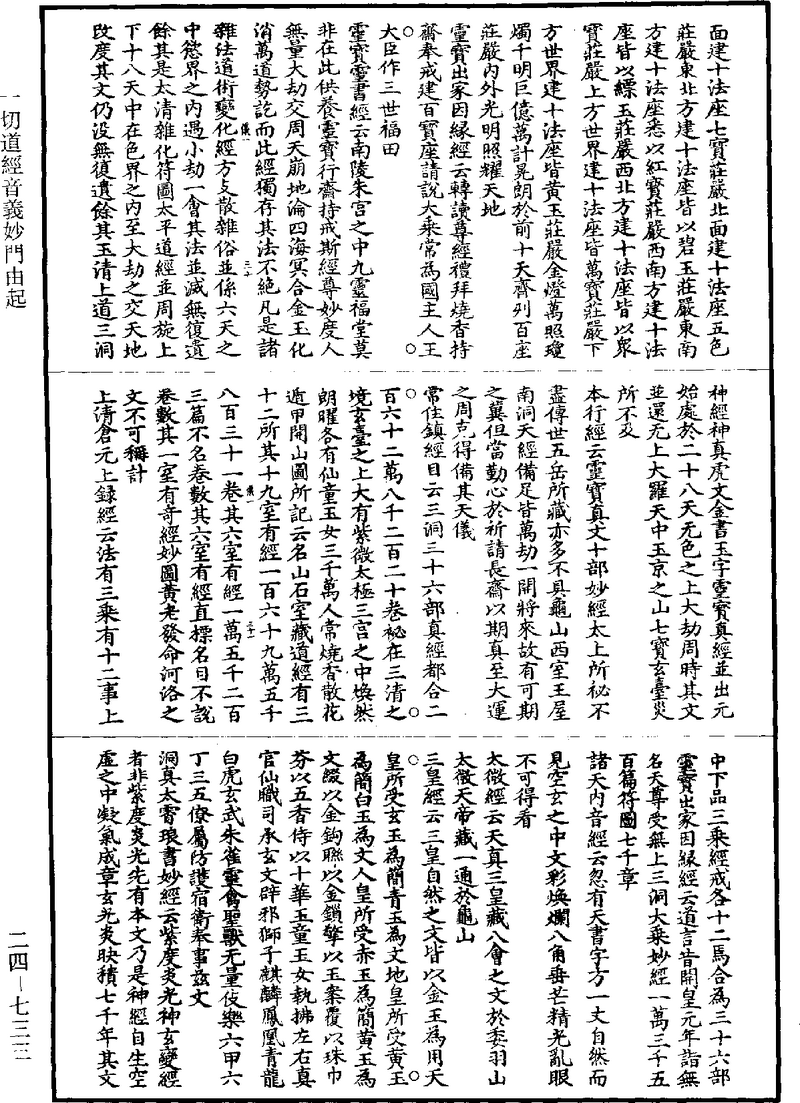 面建十法座七寶莊嚴北面建十法座五色
莊嚴東北方建十法座皆以碧玉莊嚴東南
方建十法座悉以紅寶莊嚴西南方建十法
座皆以縹玉莊嚴西北方建十法座皆以衆
寶莊嚴上方世界建十法座皆萬寶莊嚴下
方世界建十法座皆黃玉莊嚴金燈萬照瓊
燭千明巨億萬計晃朗於前十天齊列百座
莊嚴內外光明照耀天地
靈寶出家因緣經云轉讀尊經禮拜燒香持
齋奉戒建百寶座請說大乘常為國主人王
大臣作三世福田
靈寶靈書經云南陵朱宮之中九靈福堂莫
非在此供養靈寶行齋持戒斯經尊妙度人
無量大劫交周天崩地淪四海冥合金玉化
消萬道勢訖而此經獨存其法不絕凡是諸
雜法道術變化經方攴散雜俗並係六天之
中慾界之內遇小劫一會其法並滅無復遺
餘其是太清雜化符圖太平道經並周旋上
下十八天中在色界之內至大劫之交天地
改度其文仍没無復遺餘其玉清上道三洞
神經神真虎文金書玉字靈寶真經並出元
始處於二十八天无色之上大劫周時其文
並還无上大羅天中玉京之山七寶玄臺災
所不及
本行經云靈寶真文十部妙經太上所祕不
盡傳世五岳所藏亦多不具龜山西室王屋
南洞天經備足皆萬劫一開將來故有可期
之冀但當勤心於祈請長齋以期真至大運
之周克得備其天儀
常住鎮經目云三洞三十六部真經都合二
百六十二萬八千二百二十卷秘在三清之
境玄臺之上大有紫微太極三宮之中煥然
朗曜各有仙童玉女三千萬人常燒香散花
遁甲開山圖所記云名山石室藏道經有三
十二所其十九室有經一百六十九萬五千
八百三十一卷其六室有經一萬五千二百
三篇不名卷數其六室有經直標名目不說
卷數其一室有奇經妙圖黃老發命河洛之
文不可稱計
上清倉元上錄經云法有三乘有十二事上
中下品三乘經戒各十二焉合為三十六部
靈寶出家因緣經云道言昔開皇元年詣無
名天尊受無上三洞大乘妙經一萬三千五
百篇符圖七千章
諸天內音經云忽有天書字方一丈自然而
見空玄之中文彩煥爛八角垂芒精光亂眼
不可得看
太微經云天真三皇藏八會之文於委羽山
太微天帝藏一通於龜山
三皇經云三皇自然之文皆以金玉為用天
皇所受玄玉為簡青玉為文地皇所受黃玉
為簡白玉為文人皇所受赤玉為簡黃玉為
文綴以金鉤聯以金鎖擎以玉案覆以珠巾
芬以五香侍以十華玉童玉女執拂左右真
官仙職司承玄文辟邪獅千麒麟鳳凰青龍
白虎玄武朱雀靈禽聖獸无量伎樂六甲六
丁三五僚屬防護宿衛奉事茲文
洞真太霄琅書妙經云紫度炎光神玄變經
者非紫度炎光先有本文乃是神經自生空
虛之中凝氣成章玄光炎映積七千年其文
一切道經音義妙門由起
二四—七三三